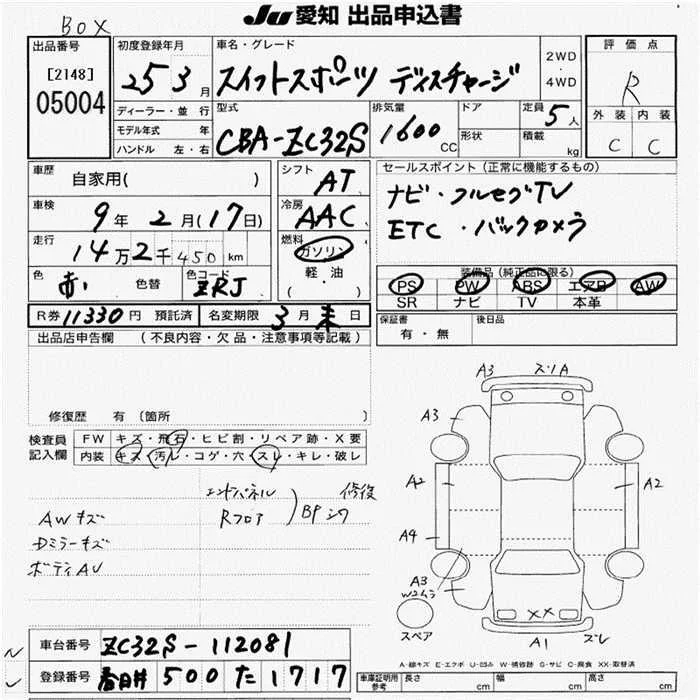 Ju 愛知 出品申込書
BOX
出品番号
[2148]
05004
初度登録年月
25 3月
車名・グレード
スイフトスポーツ ディスチャージ
2WD
・
4WD
評価点
R
外装 内装
C C
ディーラー・並行
モデル年式 年
ハンドル 左・右
型式
CBA-ZC32S
排気量
1600 CC
ドア
形状
定員
5人
積載
kg
車歴
自家用( )
車検
9年 2月(17日)
走行
14万2千450km
色
赤
色替
色コード
ZRJ
シフト
AT
冷房
AAC
燃料
ガソリン
・
軽・油
セールスポイント(正常に機能するもの)
ナビ・フルセグTV
ETC・バックカメラ
装備品(純正品に限る)
PS PW ABS エアB AW
SR ナビ TV 本革
R券 11330円 預託済 名変期限 3月末日
保証書
有・無
後日品
出品店申告欄 (不良内容・欠品・注意事項等記載)
修復歴 有(箇所 )
検査員
記入欄
FW キズ・飛石・ヒビ割・リペア跡・X要
内装 キズ・汚レ・コゲ・穴・スレ・キレ・破レ
エンドパネル
Rフロア
修復
AWキズ
Dミラーキズ
ボディAU
A3 スリA
A3
A2
A2
A4
A3
XX
スペア
A1 ズレ
A-線キズ E-エクボ U-凹み W-補修跡 S-サビ C-腐食 XX-取替済
車台番号 ZC32S-112081
登録番号 春日井 500 た 1717
車庫証明用
参考
長さ cm
幅 cm
高さ cm